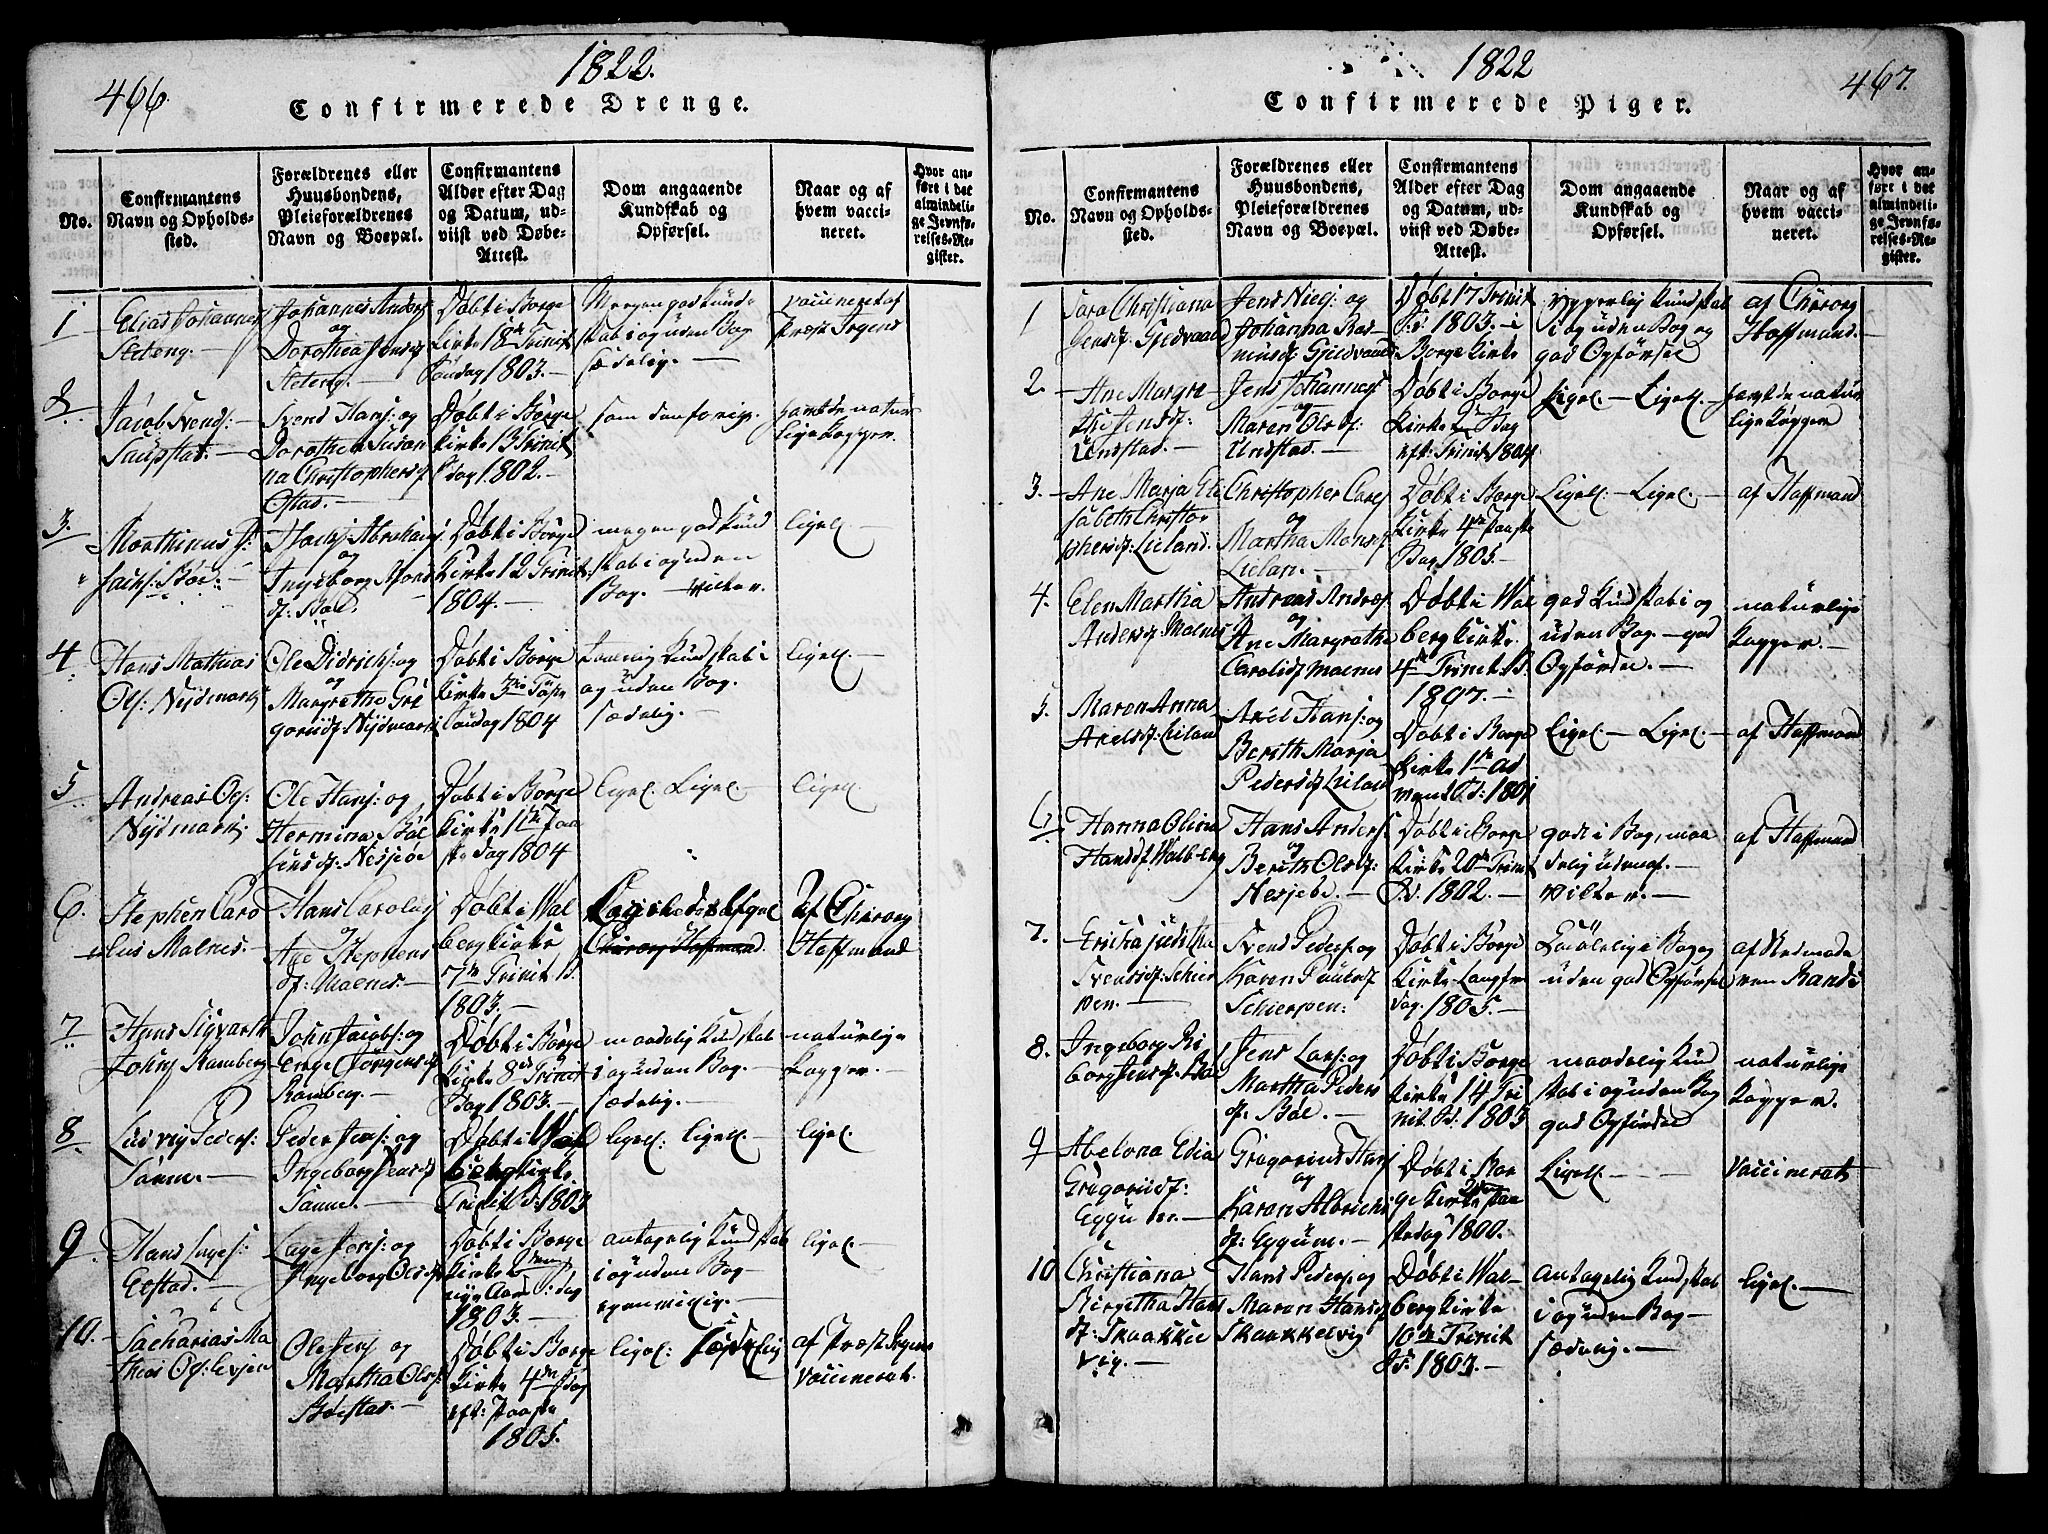 466.
1822.
Confirmerede Drenge.
No.
Confirmantens
Navn og Opholds-
sted.
Forældrenes eller
Huusbondens,
Pleieforældrenes
Navn og Boepæl.
Confirmantens
Alder efter Dag
og Datum, ud-
viist ved Døbe-
Attest.
Dom angaaende
Kundskab og
Opførsel.
Naar og af
hvem vacci-
neret.
Hvor an-
ført i det
almindeli-
ge Jevnfø-
relses-Re-
gister.
1
Elias Johannes
Steteng.
Johannes Anders
og
Dorothea Jensdf
Steteng.
Døbt i Borge
Kirke 18de Trinit
Søndag 1803.
Megen god Kund-
skab i og uden Bog
sædelig.
vaccineret af
Præst Irgens
2.
Jacob Svends:
Saupstad.
Svend Hans: og
Dorothea Susan
na Christophersdf
Ofstad.
Døbt i Borge
Kirke 13 Trinit
S: dag 1802.
som den forige.
havt de natur
lige Kopper.
3.
Morthinus J:
sachs: Bøe:
Isachs: Abrahams
og
Ingeborg Mons
df: Bøe.
Døbt i Borge
Kirke 12 Trinit:
1804.
megen god Kund
skab i og uden
Bog. vilter.
ligel.
4
Hans Mathias
Ols: Nijdmark
Ole Didrichs: og
Margrethe Gre
gorisdf Nijdmark
Døbt i Borge
Kirke 3die
Søndag 1804
Kundskab i
og uden Bog.
sædelig.
ligel.
5
Andreas Ols:
Nijdmark:
Ole Hans: og
Hermina Bol
Nesjeøe
Døbt i Borge
Kirke 1ste Paa
ske dag 1804
ligel: Ligel.
ligel.
6.
Stephen Caro
lus Malnes.
Hans Carolus
og
Ane Stephens
df: Malnes.
Døbt i Wal
berg Kirke
7de Trinit S.
1803.
Chirorg Hoffmand.
af Chirorg
Hoffmand
7
Hans Sigvardt
Johns Ramberg
John Jacobs: og
Enge Jørgensdf
Ramberg.
Døbt i Borge
Kirke 8de Trinit
Dag 1803.
maadelig Kundskab
i og uden Bog.
sædelig.
naturlige
Kopper.
8
Ludvig Peders:
Sanne.
Peder Jens: og
Ingeborg Jensdf
Sanne.
Døbt i Wal
berg Kirke
Trinit S: 1803
ligel: ligel.
ligel.
9.
Hans Lages:
Eltstad.
Lage Jens: og
Ingeborg Olsdf
Døbt i Borge
Kirke 2den
nye Aars S: dag
1803.
antagelig Kundskab
i og uden Bog
ligel.
10.
Zacharias Ma
thias Ols:
Ole Jens og
Martha Olsdf
Bøestad.
Døbt i Borge
Kirke 4de S: dag
eft: Paaske
1805.
ligel: sædelig
af Præst Irgens
vaccineret.
1822
467.
Confirmerede Piger.
No.
Confirmantens
Navn og Opholds-
sted.
Forældrenes eller
Huusbondens,
Pleieforældrenes
Navn og Boepæl.
Confirmantens
Alder efter Dag
og Datum, ud-
viist ved Døbe-
Attest.
Dom angaaende
Kundskab og
Opførsel.
Naar og af
hvem vacci-
neret.
Hvor an-
ført i det
almindeli-
ge Jevnfø-
relses-Re-
gister.
1
Sara Christiana
Jensdf: Gjedvaad
Jens Niels: og
Johanna Ras-
musdf: Gjeldvaad
Døbt 17 Trinit
S: 1803. i
Borge Kirke
Ypperlig Kundskab
i og uden Bog og
god Opførsel
af Chirorg
Hoffmand.
2.
Ane Margre
the Jensdf:
Undstad.
Jens Johannes
og
Maren Olsdf:
Undstad.
Døbt i Borge
Kirke Dag
eft: Trinit 1804
Ligel. Ligel.
havt de natur
lige Kopper
3.
Ane Marja Eli
sabeth Christo-
phersdf: Lieland.
Christopher Carl
og
Martha Monsdf
Lielan.
Døbt i Borge
Kirke 4de Paaske
Dag 1805.
Ligel. Ligel.
af Hoffmand
4.
Elen Martha
Andersdf Malnes
Andreas Andres
og
Ane Margrethe
Carolidf Malnes
Døbt i Wal
berg Kirke.
4de Trinit S.
1807.
god Kundskab i og
uden Bog. god
Opførsel.
naturlige
Kopper.
5.
Maren Anna
Axelsdf: Lieland
Axel Hans: og
Berith Marja
Pedersdf Lieland
Døbt i Borge
Kirke 1ste ad
vents S: 1801
Ligel. Ligel.
af Hoffmand
6
Hanna Olina
Hansdf Walberg
Hans Anders
og
Berith Olsdf:
Nesjebe.
Døbt i Borge
Kirke 20de Trinit
S. 1802.
godt i Bog, maa
delig udenaf.
vilter.
af Hoffmand
7.
Ericka
Svensdf: Schier
ven.
Svend Peders: og
Karen Paulsdf
Schierpen:
Døbt i Borge
Kirke Langfre
dag. 1805.
i Bog og
uden god Opførsel
af
8.
Ingeborg Ri
borg Jensdf: Bøe
Jens Lars: og
Martha Peders
df: Bøe.
Døbt i Borge
Kirke 14 Tri
nit. S. 1805
maadelig Kund
skab i og uden Bog
god Opførsel
naturlige
Kopper.
9
Abelona Edia
Gregorisdf:
Eggum.
Gregorius Hans
og
Karen Albrichs
df: Eggum.
Døbt i Bor
ge Kirke 2den Paa
skedag 1800.
Ligel.
Vaccineret
10
Christiana
Birgetha Hans
df: Skaakkel
vig.
Hans Peders: og
Maren Hansdf
Skaakkelvig
Døbt i Wal-
berg Kirke
10de Trinit
S. 1803.
Antagelig Kundskab
i og uden Bog
sædelig.
ligel.